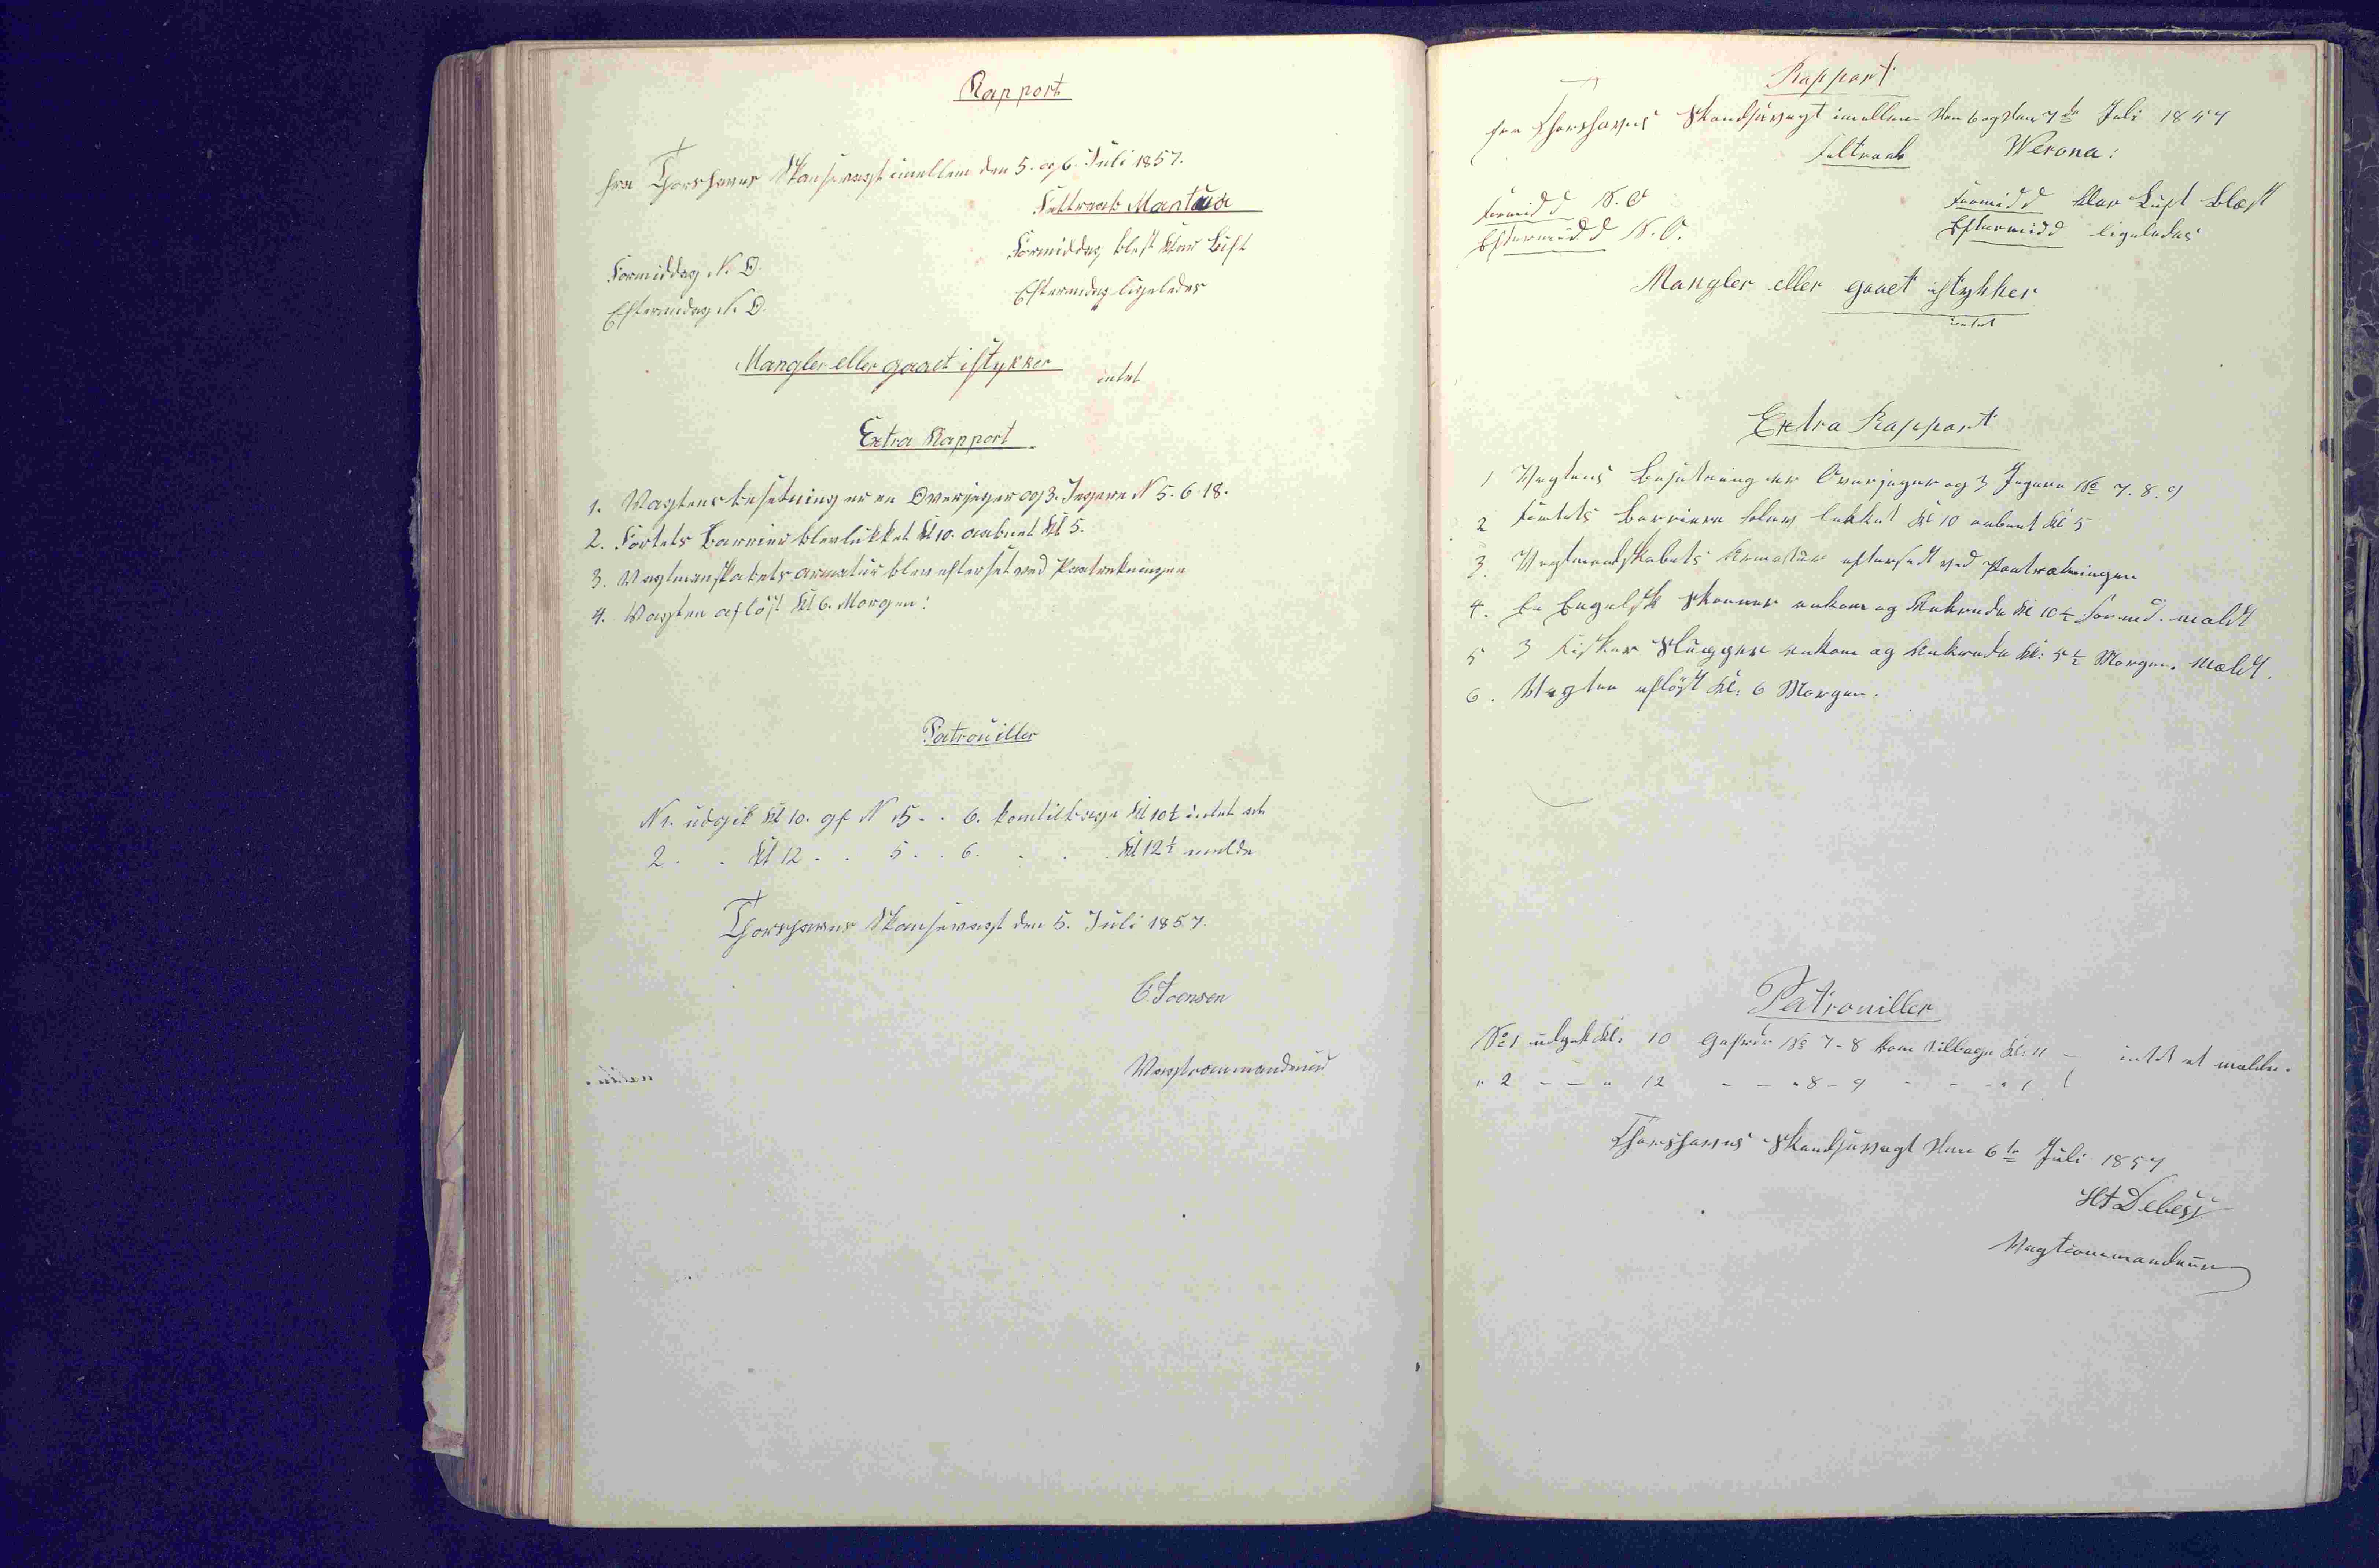 Rapport
fra Thorshavns Skansevagt imellem den 5. og 6. Juli 1857.
Feltraab Mantua
Formiddag N. O.
Formiddag blest klar Luft
Eftermidag N. O.
Eftermidag ligeledes
Mangler eller gaaet istykker
intet
Extra Rapport
1. Vagtens besetning er en Overjeger og 3. Jegere N 5. 6. 18.
2. Fortets Barriere blev lukket Kl 10. aabnet Kl 5.
3. Vagtmanskabets armatur blev efterset ved Paatrekningen
4. Vagten afløst Kl 6. Morgen!
Patrouiller
N 1. udgik Kl 10. gf N 5 - . 6. kom tilbage Kl 10½ intet at
2. . Kl 12 - . 5 . . 6. . . Kl 12½ melde
Thorshavns Skansevagt den 5. Juli 1857.
C. Joensen
Vagtcommandeur
Rapport
fra Thorshavns Skandsevagt imellem den 6 og den 7de Juli 1857
Feltraab Werona:
Formidd N. O
Formidd klar Luft Blæst
Eftermidd N. O.
Eftermidd ligeledes
Mangler eller gaaet istykker
intet
Extra Rapport
1 Vagtens Besætning er Overjeger og 3 Jegere No 7. 8. 9
2 Fortets Barriere blev lukket Kl 10 aabent Kl 5
3. Vagtmandskabets Armatur efterset ved Paatrækningen
4. En Engelsk Skonner ankom og Ankrede Kl 10½ Formd. mældt
5 3 Fisker Slupper ankom og Ankrede Kl: 5½ Morgen. Mældt.
6. Vagten afløst Kl: 6 Morgen.
Patrouiller
No 1 udgik Kl. 10 Gefreder No 7-8 kom tilbage Kl: 11 - intet at mælde.
" 2 - - " 12 - - " 8 - 9 - - - " 1
Thorshavns Skandsevagt den 6te Juli 1857
Debess
Vagtcommandeur